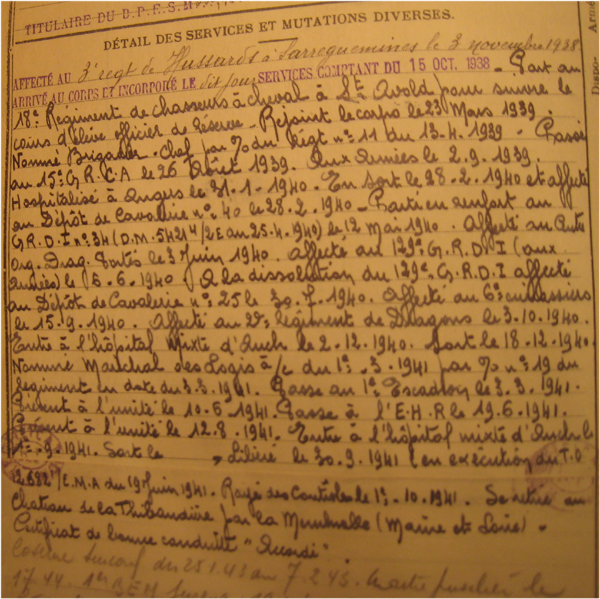 TITULAIRE DU B.P.E.S.M
DÉTAIL DES SERVICES ET MUTATIONS DIVERSES.
AFFECTÉ AU 3e regt de Hussards à Sarreguemines le 3 novembre 1938
ARRIVÉ AU CORPS ET INCORPORÉ LE dit jour SERVICES COMPTANT DU 15 OCT. 1938 - Part au
18e Régiment de chasseurs à cheval à St Avold pour suivre le
cours d'élève officier de réserve - Rejoint le corps le 23 Mars 1939 -
Nommé Brigadier-Chef par %o du Régt n° 11 du 13.4.1939 - Passé
au 15e G.R.C.A le 26 Août 1939. Aux Armées le 2.9.1939.
Hospitalisé à Angers le 31.1.1940. En sort le 28.2.1940 et affecté
au Dépôt de Cavalerie n° 40 le 28.2.1940 - Parti en renfort au
G.R.D.I n° 34 (D.M. 54214/2E au 25.4.1940) le 12 Mai 1940. Affecté au
Org. Drag. Portés le 3 Juin 1940. Affecté au 129e G.R.D.I (aux
armées) le 6.6.1940 A la dissolution du 129e G.R.D.I affecté
au Dépôt de Cavalerie n° 25 le 30.7.1940. Affecté au 6e cuirassiers
le 15.9.1940. Affecté au 2e régiment de Dragons le 3.10.1940.
Entre à l'hôpital Mixte d'Auch le 2.12.1940. Sort le 18.12.1940.
Nommé Maréchal des Logis à/c du 1er.3.1941 par %o n° 19 du
régiment en date du 3.3.1941. Passe au 1er Escadron le 3.3.1941.
Présent à l'unité le 10.6.1941. Passe à l'E.H.R le 19.6.1941.
Présent à l'unité le 12.8.1941. Entre à l'hôpital mixte d'Auch le
1er.9.1941. Sort le , Libéré le 30.9.1941 (en exécution du T.O
12.682/E.M.A du 19 Juin 1941. Rayé des Contrôles le 1er.10.1941. Se retire au
Chateau de la Thibaudière par la Membrolle (Maine et Loire) -
Certificat de bonne conduite "Accordé".
du 25.1.43 au 7.2.43. le
17.44